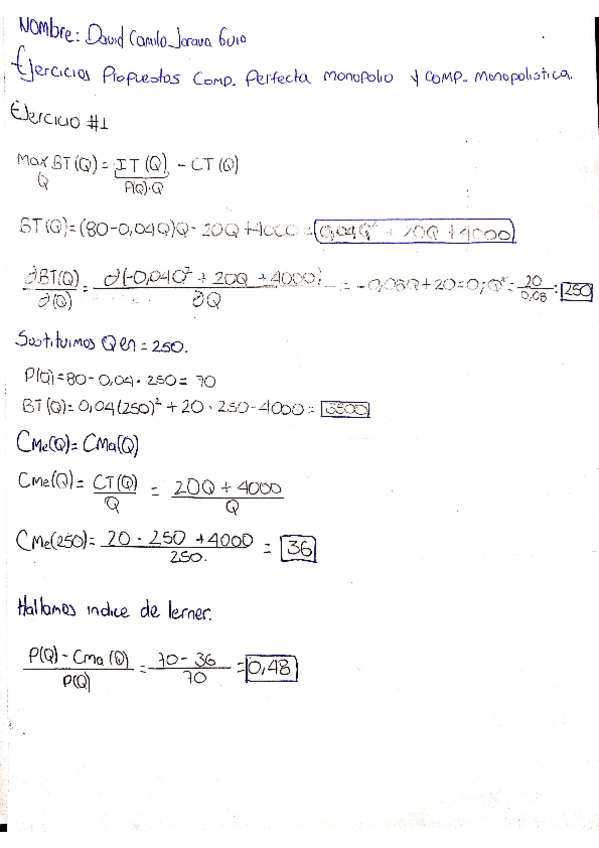 Nombre: David Camilo
Ejercicios Propuestos Comp. Perfecta Monopolio y Comp. Monopolistica.
Ejercicio #1
Max BT(Q) = IT(Q) - CT(Q)
Q P(Q)·Q
BT(Q)=(80-0,04Q)Q - 20Q + 4000 = 0,04Q² + 20Q + 4000
∂BT(Q) = ∂(-0,04Q² + 20Q + 4000) = -0,08Q + 20 = 0; Q* = 20 = 250
∂(Q) ∂Q 0,08
Sustituimos Q en = 250.
P(Q) = 80 - 0,04 · 250 = 70
BT(Q) = 0,04(250)² + 20 · 250 - 4000 =
CMe(Q) = CMa(Q)
Cme(Q) = CT(Q) = 20Q + 4000
Q Q
CMe(250) = 20 · 250 + 4000 = 36
250.
Hallamos indice de lerner.
P(Q) - Cma(Q) = 70 - 36 = 0,48
P(Q) 70